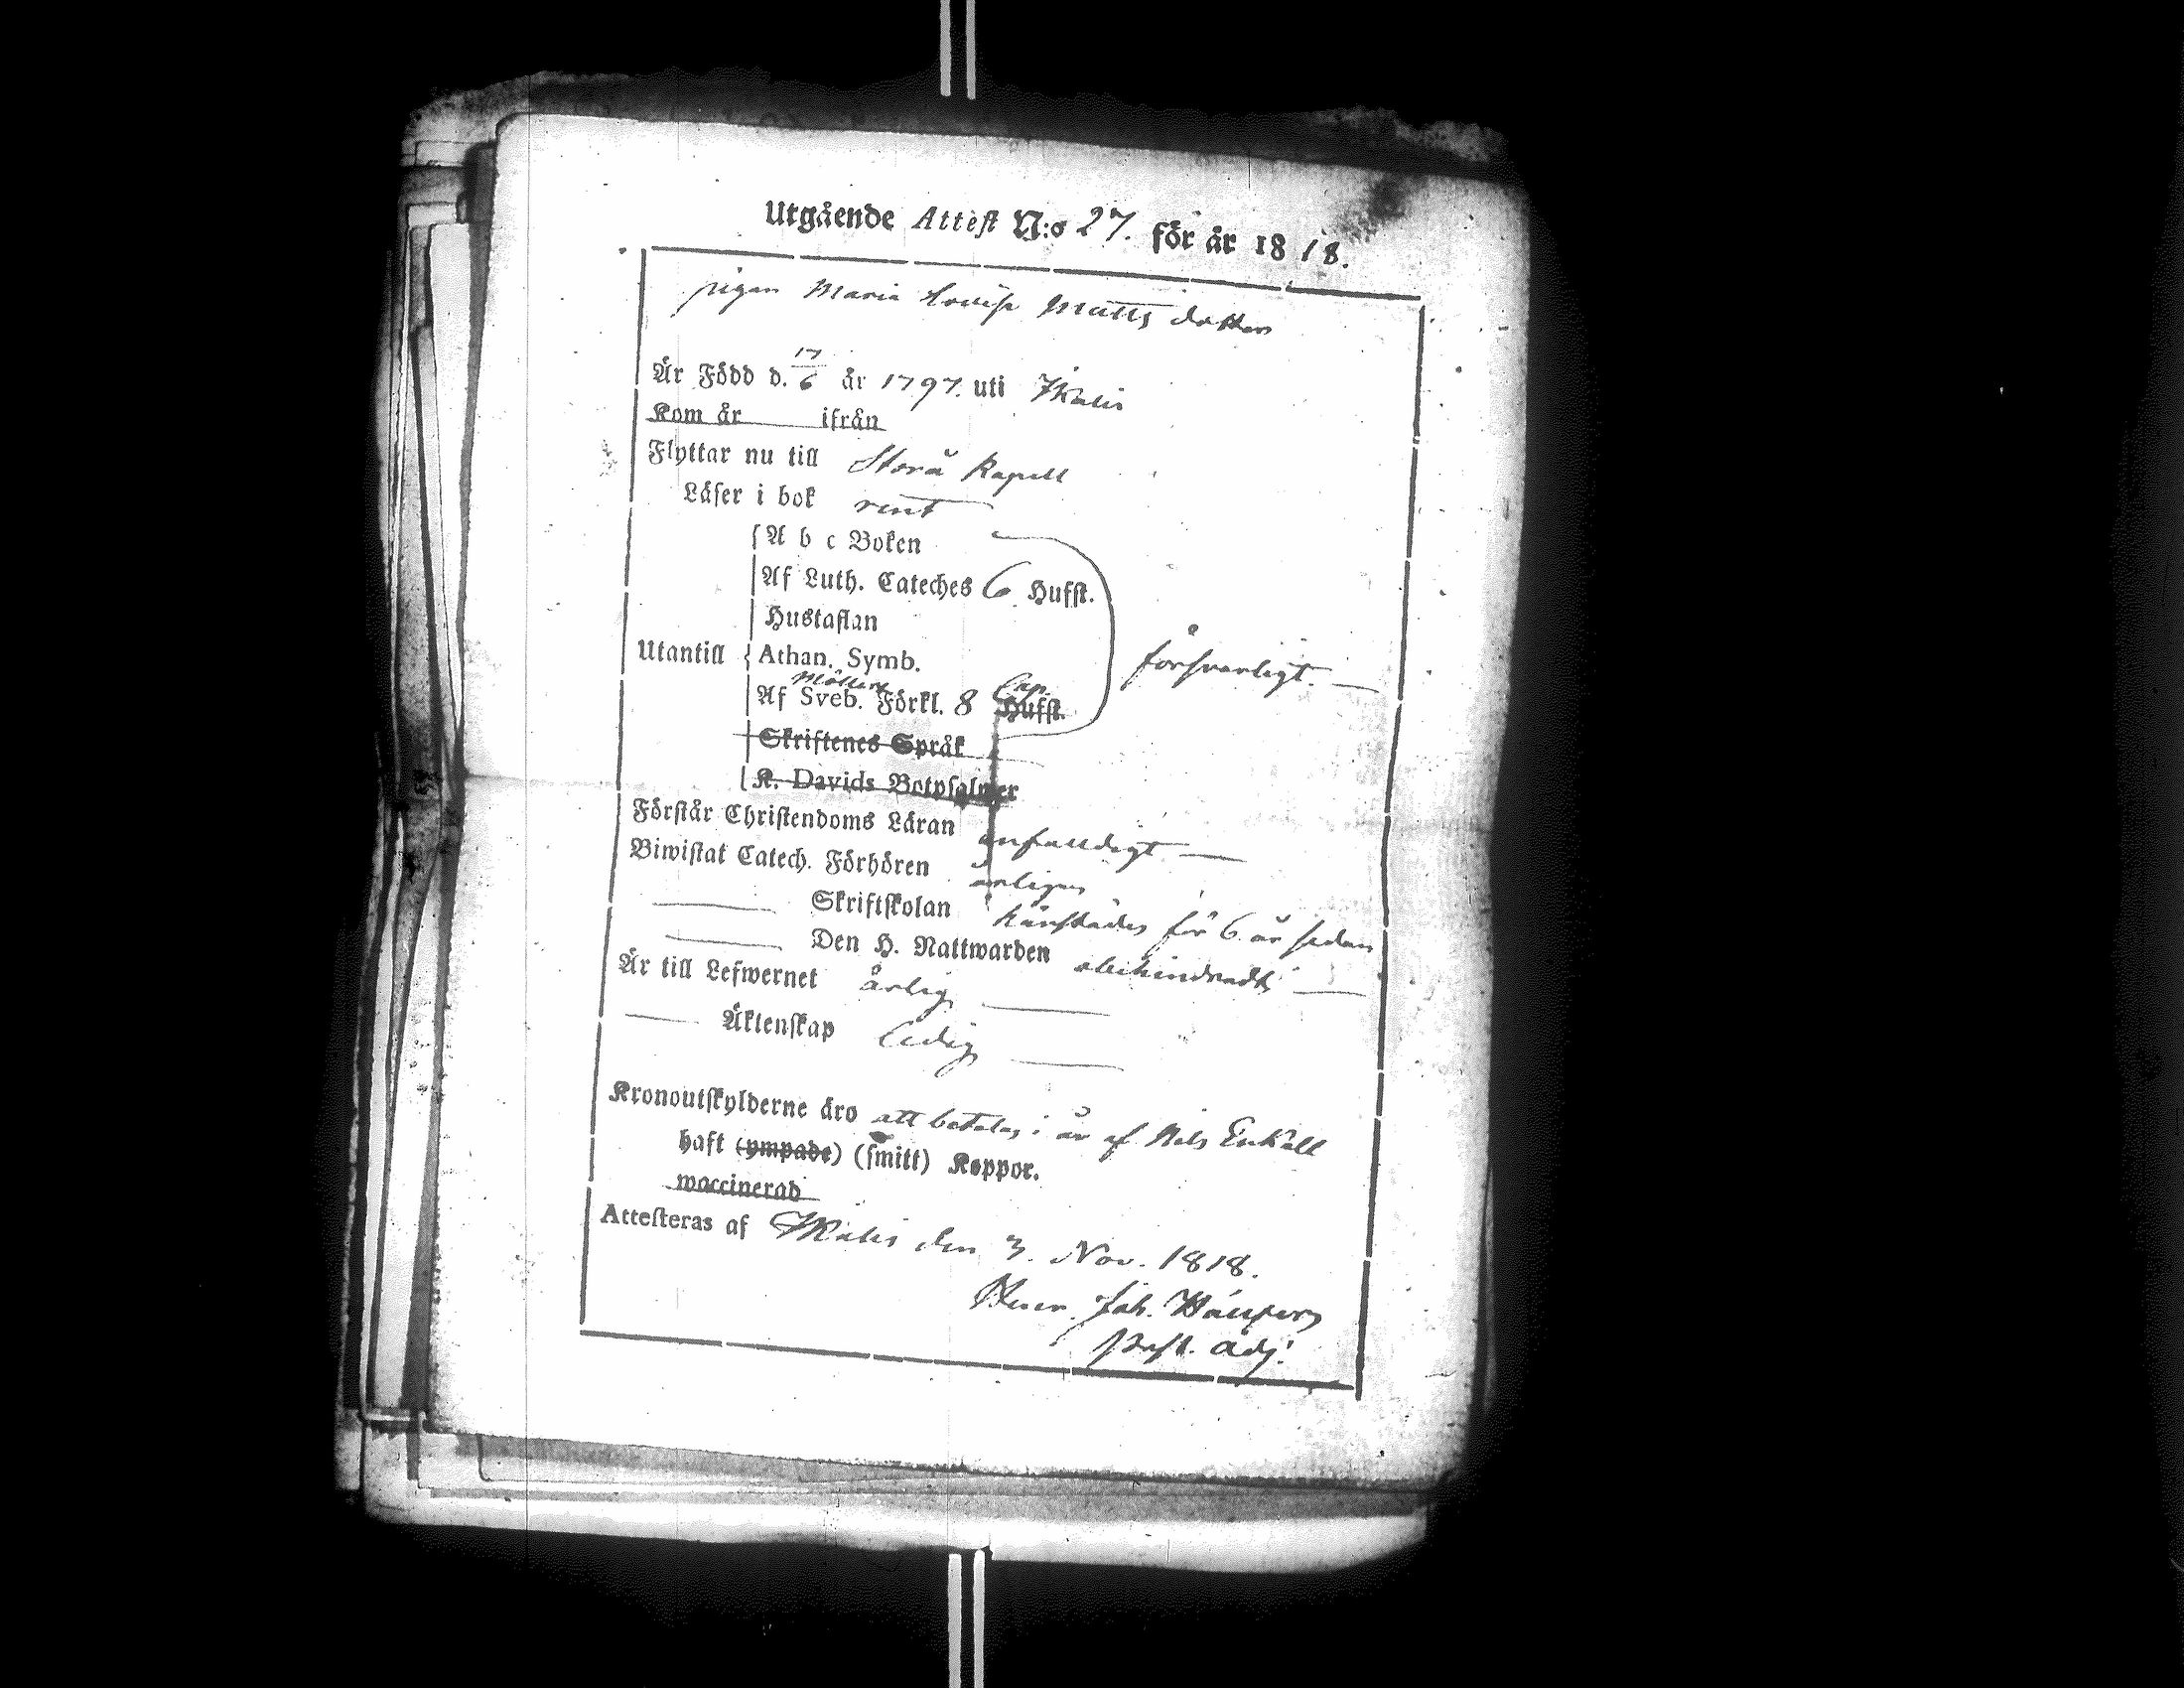 Utgående Attest N:o 27. för år 1818.
pigan Maria Lovisa Matts dotter
Är Född d. 17/6 år 1797. uti Ikalis
Kom år ifrån
Flyttar nu till Storå Kapell
Läser i bok rent
A b c Boken
Af Luth. Cateches 6 Hufst.
Hustaflan
Utantill Athan. Symb. försvarligt.
Möllers Cap.
Af Sveb. Förkl. 8 Hufst.
Skriftenes Språk
K. Davids Botpsalmer
Förstår Christendoms Läran enfaldigt
Biwistat Catech. Förhören årligen
Skriftskolan härstädes för 6 år sedan
Den H. Nattwarden obehindradt
Är till Lefwernet ärlig
Äktenskap Ledig
Kronoutskylderne äro att betalas i år af Nils Enkell
haft (ympade) (smitt) Koppor.
waccinerad
Attesteras af Ikalis den 3. Nov. 1818.
Joh.
Past. Adj.